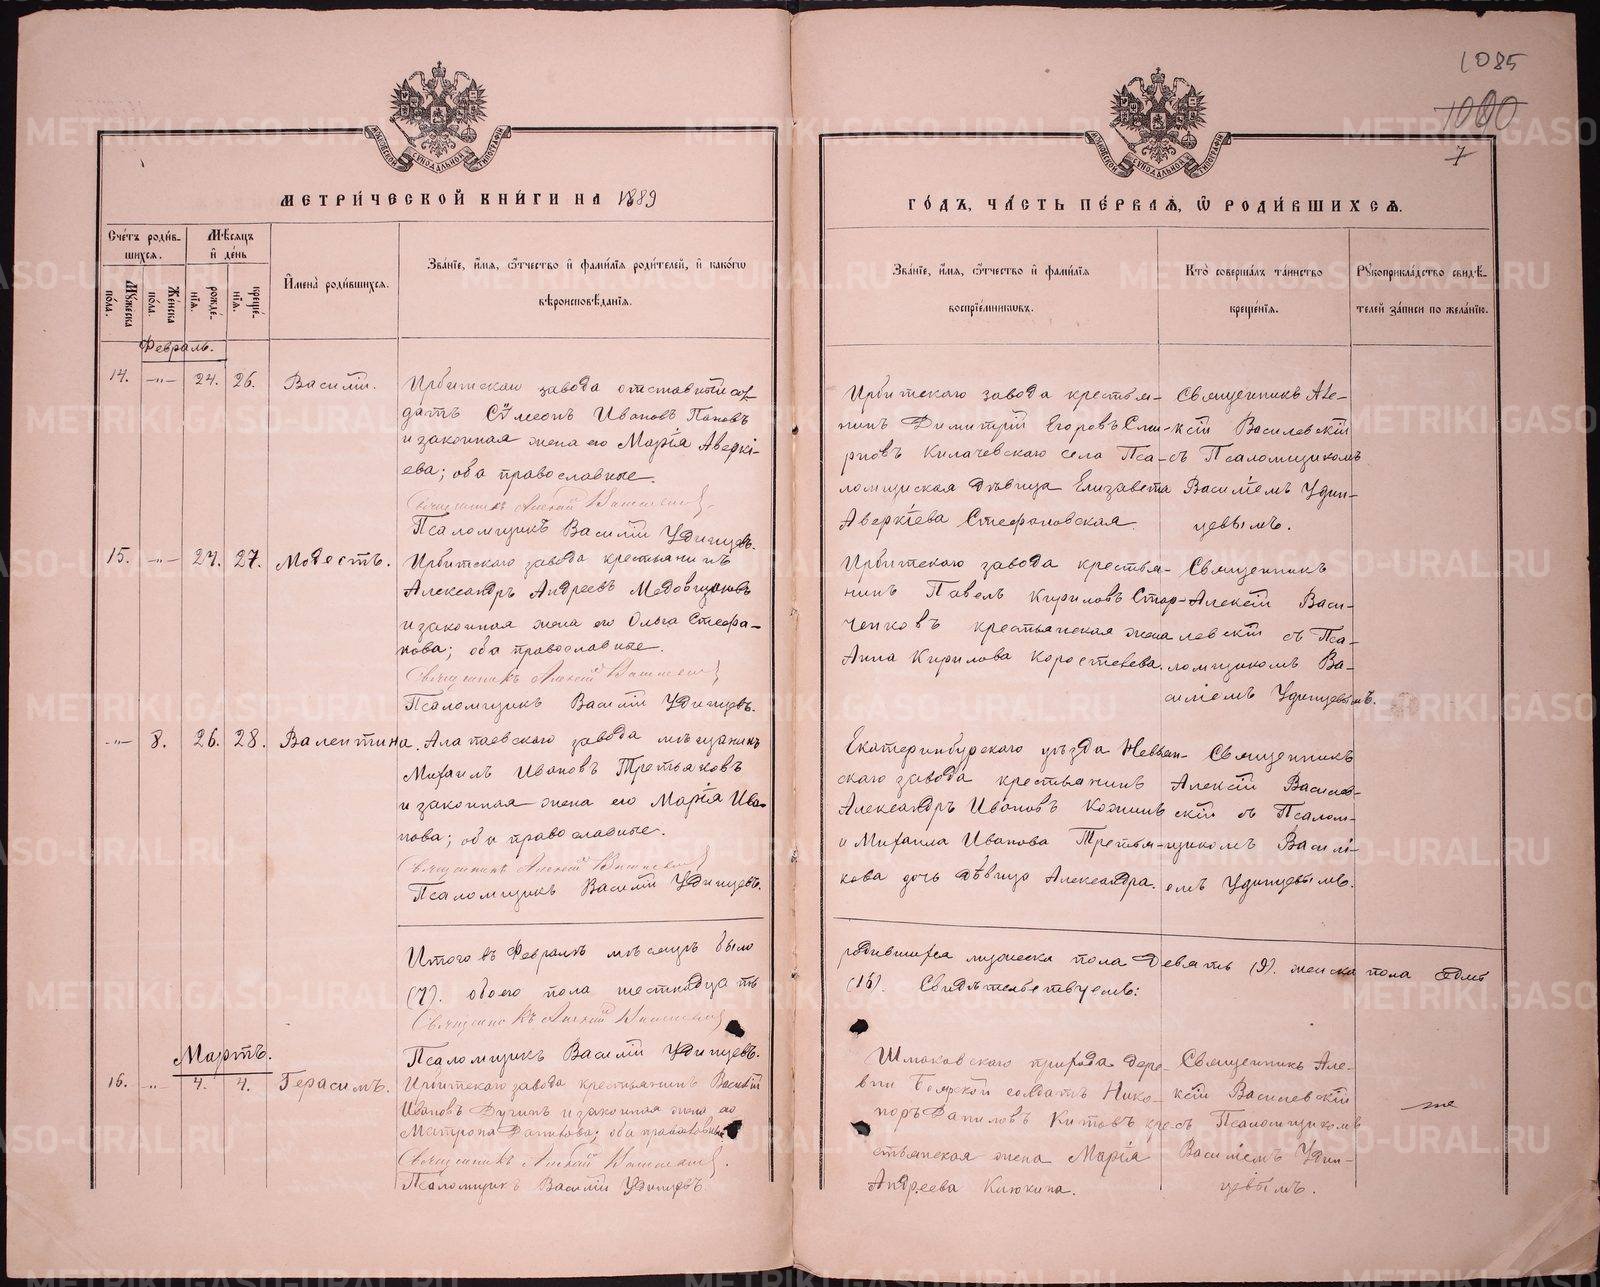 1085
1000
7
МОСКОВСКОЙ СѴНОДАЛЬНОЙ ТИПОГРАФІИ
МОСКОВСКОЙ СѴНОДАЛЬНОЙ ТИПОГРАФІИ
МЕТРИ́ЧЕСКОЙ КНИ́ГИ НА 1889
ГО́ДЪ, ЧА́СТЬ ПЕ́РВАЯ, Ѡ҆ РОДИ́ВШИХСЯ.
Сче́тъ роди́в-
шихся.
Мѣсяцъ
и҆ де́нь
Мꙋжеска по́ла.
Же́нска по́ла.
рожде́-
нія.
креще́-
нія.
И҆мена̀ роди́вшихся.
Зва́ніе, и҆́мя, ѻ҆́тчество и҆ фами́лія роди́телей, и҆ како́гѡ
вѣроисповѣ́данія.
Зва́ніе, и҆́мя, ѻ҆́тчество и҆ фами́лія
воспріе́мникѡвъ.
Кто̀ соверша́лъ та́инство
креще́нія.
Рꙋкоприкла́дство свидѣ́-
телей за́писи по жела́нію.
Февраль.
14. -„- 24. 26. Василій.
Ирбитскаго завода отставной сол-
датъ Сѵмеонъ Ивановъ Поповъ
и законная жена его Марія Аверкі-
ева; оба православные.
Священникъ Алексій Василевскій
Псаломщикъ Василій Удинцевъ.
Ирбитскаго завода крестья-
нинъ Димитрій Егоровъ Сми-
рновъ Килачевскаго села Пса-
ломщикская дѣвица Елизавета
Аверкіева Стефановская
Священникъ Але-
ксій Василевскій
съ Псаломщикомъ
Василіемъ Удин-
цевымъ.
15. -„- 24. 27. Модестъ.
Ирбитскаго завода крестьянинъ
Александръ Андреевъ Медовщиковъ
и законная жена его Ольга Стефа-
нова; оба православные.
Священникъ Алексій Василевскій
Псаломщикъ Василій Удинцевъ.
Ирбитскаго завода крестья-
нинъ Павелъ Кириловъ Стар-
ченковъ крестьянская жена
Анна Кирилова Коростелева.
Священникъ
Алексій Васи-
левскій съ Пса-
ломщикомъ Ва-
силіемъ Удинцевымъ.
-„- 8. 26. 28. Валентина.
Алапаевскаго завода мѣщанинъ
Михаилъ Ивановъ Третьяковъ
и законная жена его Марія Ива-
нова; оба православные.
Священникъ Алексій Василевскій
Псаломщикъ Василій Удинцевъ.
Екатеринбургскаго уѣзда Невьян-
скаго завода крестьянинъ
Александръ Ивановъ Кожинъ
и Михаила Иванова Третья-
кова дочь дѣвица Александра.
Священникъ
Алексій Василев-
скій съ Псалом-
щикомъ Василі-
емъ Удинцевымъ.
Итого въ Февралѣ мѣсяцѣ было
родившихся мужеска пола девять (9). женска пола седмь
(7). обоего пола шестнадцать
(16). Свидѣтельствуемъ:
Священникъ Алексій Василевскій
Псаломщикъ Василій Удинцевъ.
Мартъ.
16. -„- 4. 4. Герасимъ.
Ирбитскаго завода крестьянинъ Василій
Ивановъ Дугинъ и законная жена его
Матрона Данилова; оба православные
Священникъ Алексій Василевскій.
Псаломщикъ Василій Удинцевъ
Шмаковскаго прихода дере-
вни Боярской солдатъ Нико-
норъ Даниловъ Китовъ кре-
стьянская жена Марія
Андреева Клюкина.
Священникъ Але-
ксій Василевскій
съ Псаломщикомъ
Василіемъ Удин-
цевымъ.
METRIKI.GASO-URAL.RU